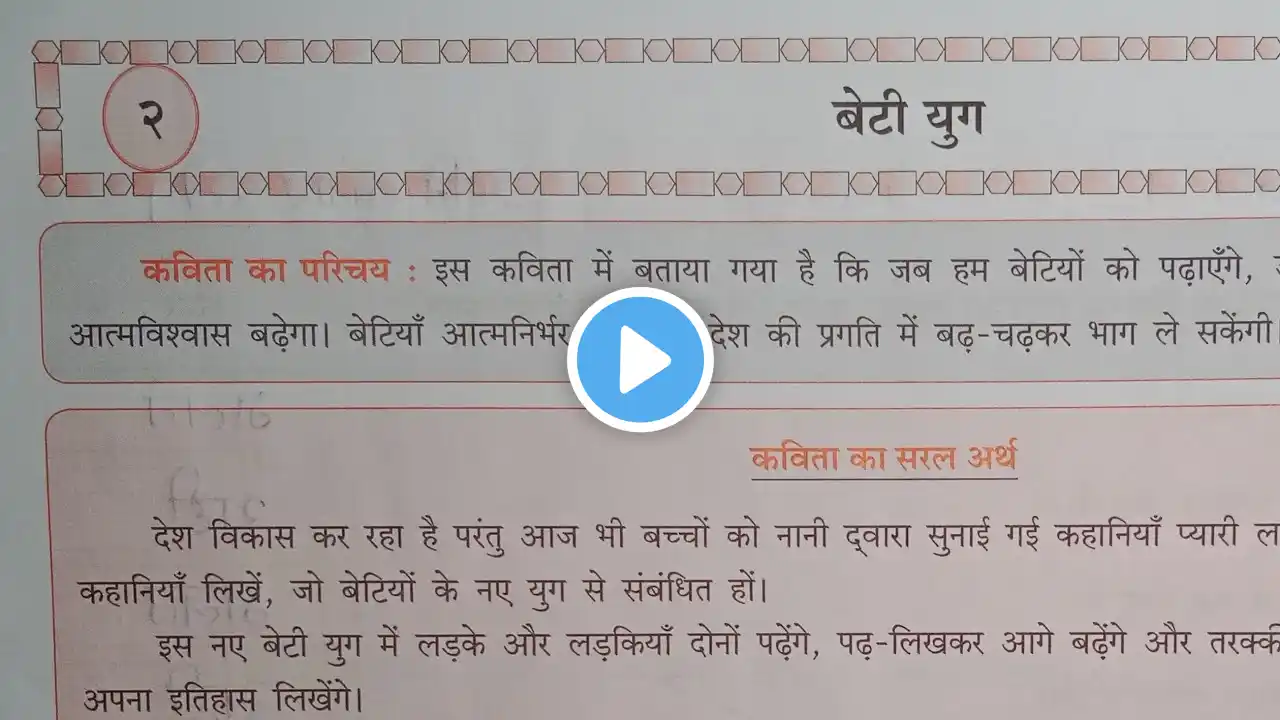 २
बेटी युग
कविता का परिचय : इस कविता में बताया गया है कि जब हम बेटियों को पढ़ाएँगे,
आत्मविश्वास बढ़ेगा। बेटियाँ आत्मनिर्भर देश की प्रगति में बढ़-चढ़कर भाग ले सकेंगी।
कविता का सरल अर्थ
देश विकास कर रहा है परंतु आज भी बच्चों को नानी द्वारा सुनाई गई कहानियाँ प्यारी
कहानियाँ लिखें, जो बेटियों के नए युग से संबंधित हों।
इस नए बेटी युग में लड़के और लड़कियाँ दोनों पढ़ेंगे, पढ़-लिखकर आगे बढ़ेंगे और
अपना इतिहास लिखेंगे।